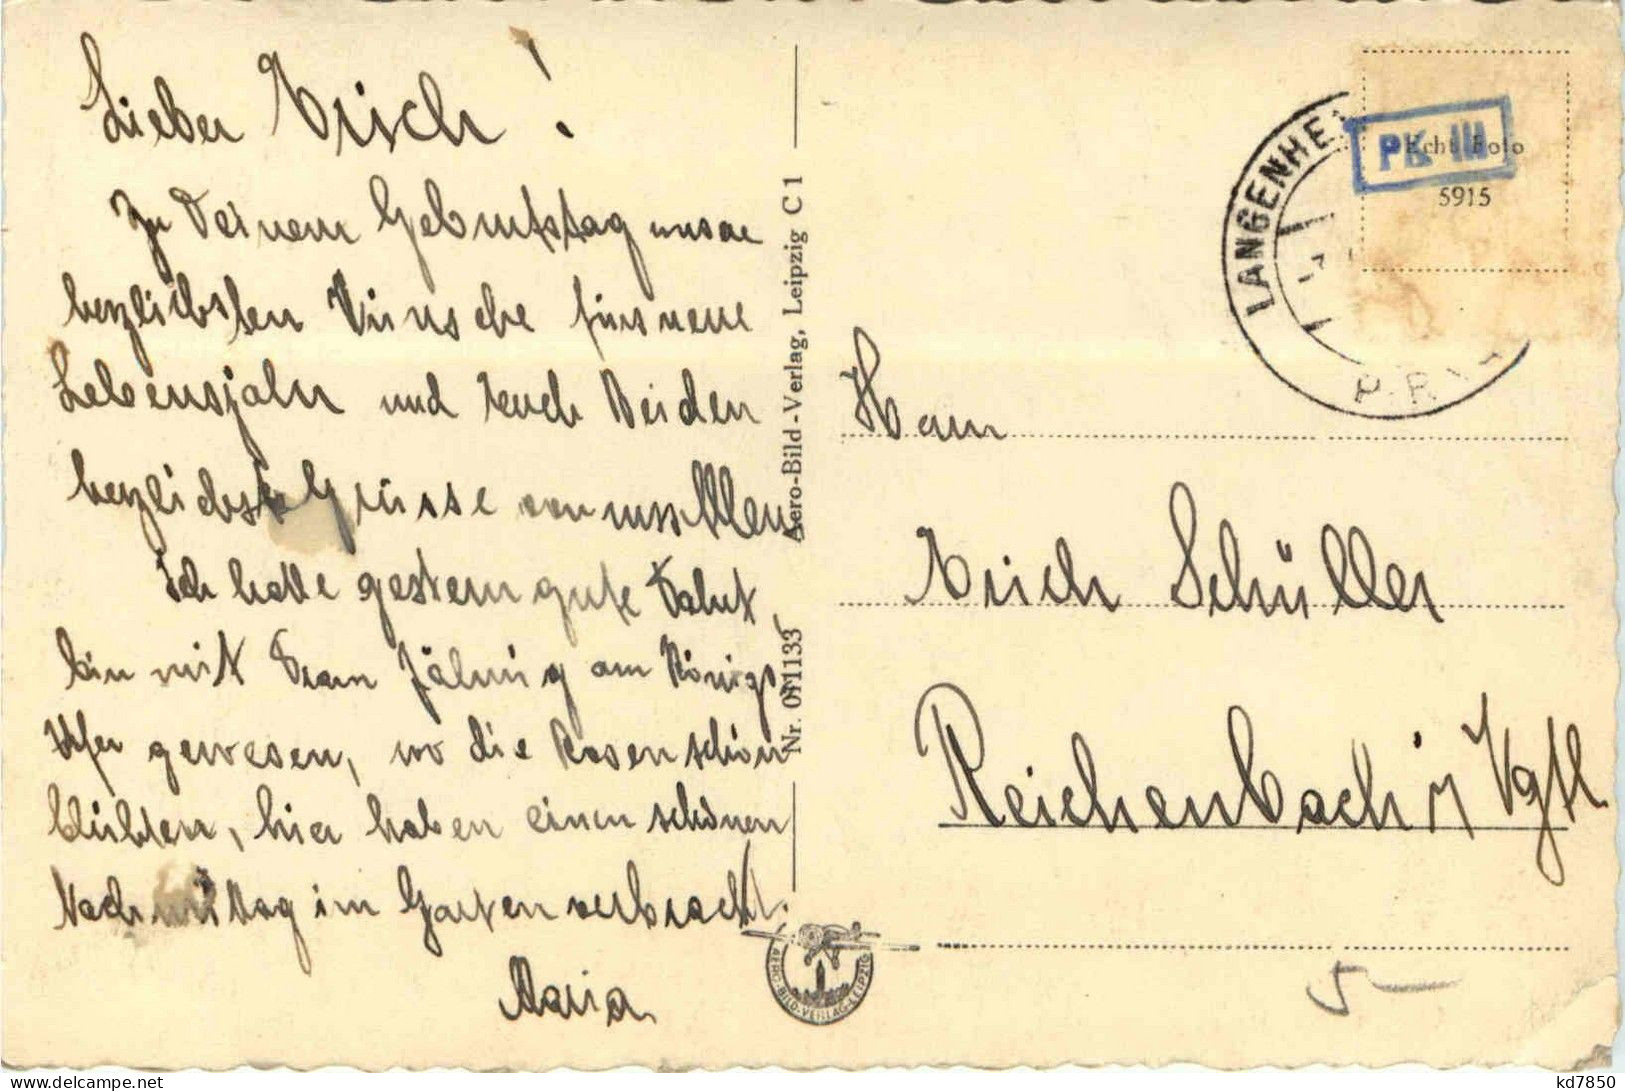 Lieber Erich!
Zu Deinem Geburtstag unsere
herzlichsten Wünsche fürs neue
Lebensjahr und Euch Beiden
herzlichste Grüsse von uns Allen
Ich hatte gestern gute Fahrt,
bin mit Frau am Königs
Ufer gewesen, wo die Rosen schön
blühten, hier haben einen schönen
Nachmittag im Garten verbracht.
Maria
Aero-Bild-Verlag, Leipzig C 1
Nr. 011133
AERO-BILD-VERLAG-LEIPZIG
LANGENHE
PK III
Echt Foto
5915
Herrn
Erich Schüller
Reichenbach i/ Vgtl.
5—
kd7850